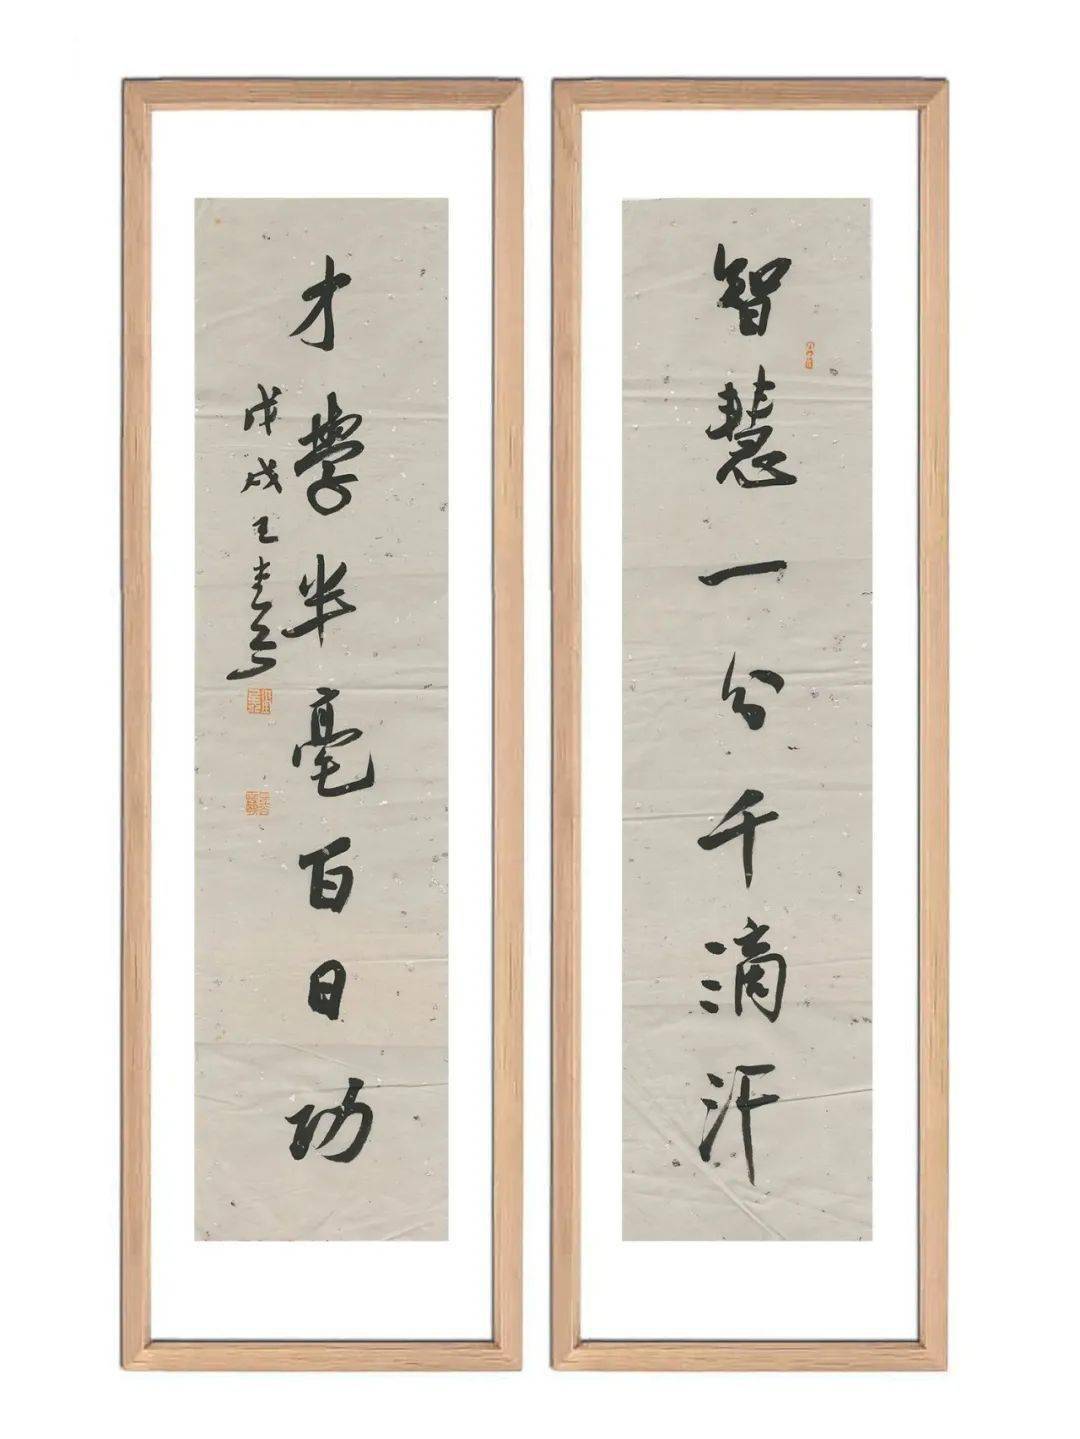 智慧一分千滴汗
才學半毫百日功
戊戌王